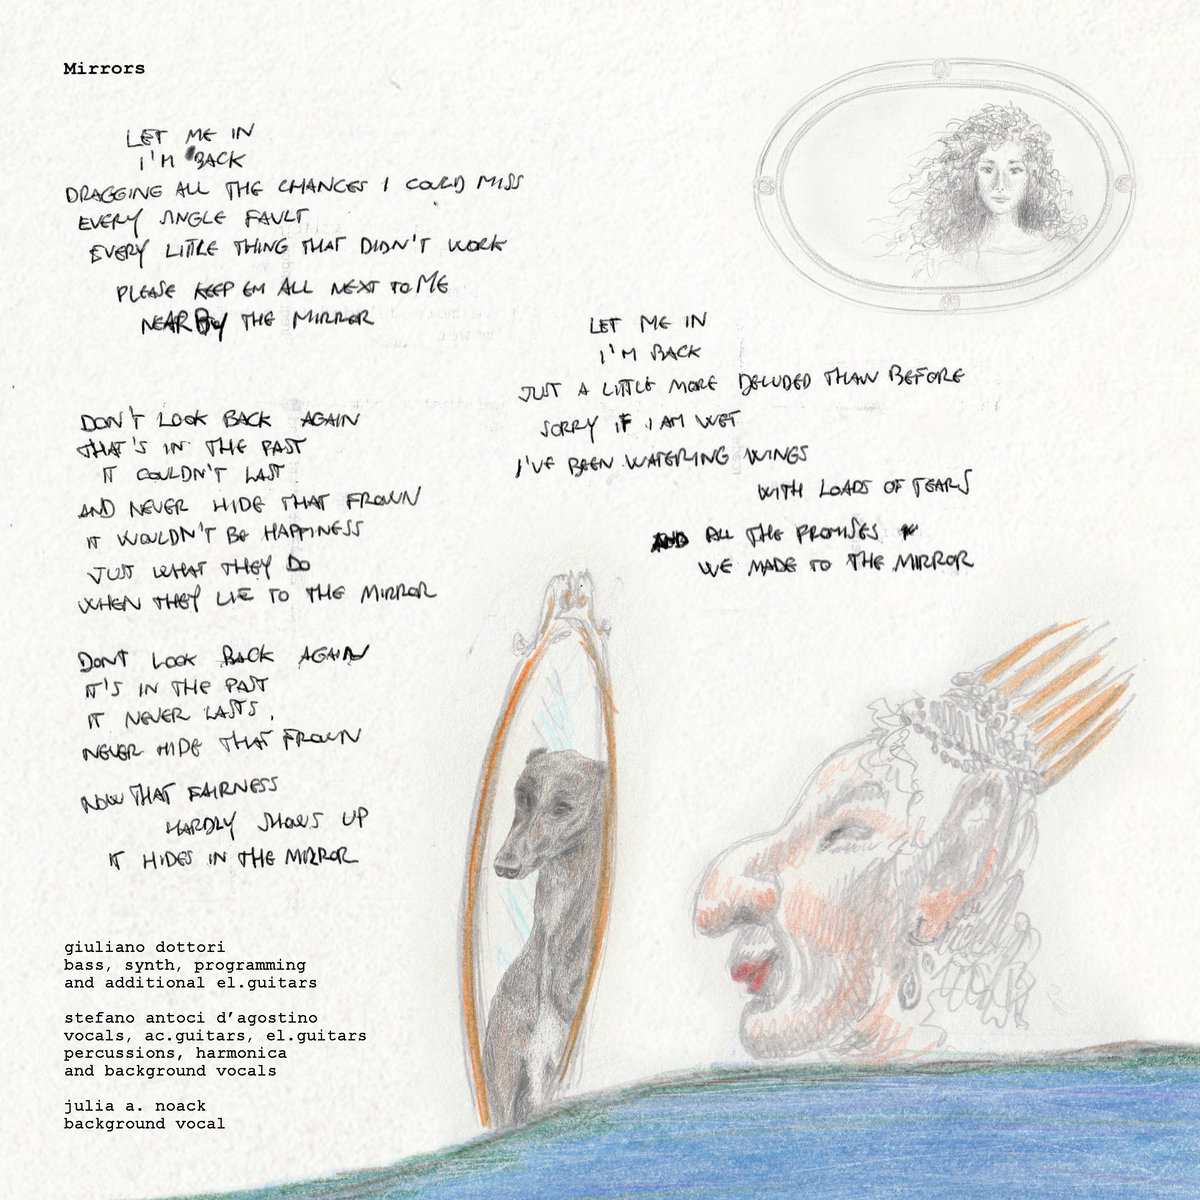 Mirrors
LET ME IN
I'M BACK
DRAGGING ALL THE CHANCES I COULD MISS
EVERY SINGLE FAULT
EVERY LITTLE THING THAT DIDN'T WORK
PLEASE KEEP EM ALL NEXT TO ME
NEARBY THE MIRROR
DON'T LOOK BACK AGAIN
THAT'S IN THE PAST
IT COULDN'T LAST
AND NEVER HIDE THAT FROWN
IT WOULDN'T BE HAPPINESS
JUST WHAT THEY DO
WHEN THEY LIE TO THE MIRROR
DON'T LOOK BACK AGAIN
IT'S IN THE PAST
IT NEVER LASTS,
NEVER HIDE THAT FROWN
NOW THAT FAIRNESS
HARDLY SHOWS UP
IT HIDES IN THE MIRROR
LET ME IN
I'M BACK
JUST A LITTLE MORE DELUDED THAN BEFORE
SORRY IF I AM WET
I'VE BEEN WATERING WINGS
WITH LOADS OF TEARS
AND ALL THE PROMISES
WE MADE TO THE MIRROR
giuliano dottori
bass, synth, programming
and additional el.guitars
stefano antoci d'agostino
vocals, ac.guitars, el.guitars
percussions, harmonica
and background vocals
julia a. noack
background vocal